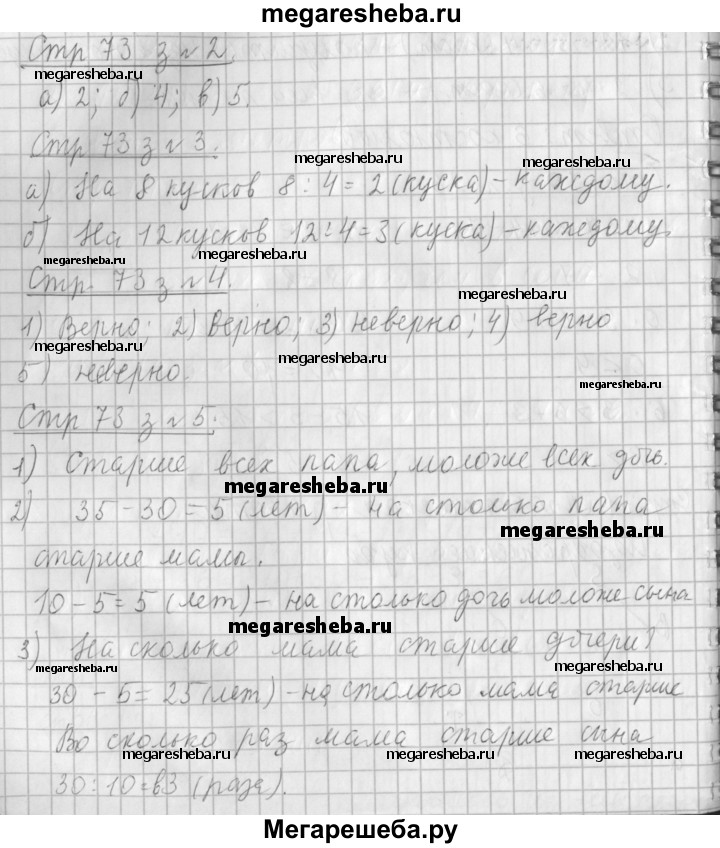 megaresheba.ru
Стр 73 з № 2.
megaresheba.ru
а) 2; б) 4; в) 5.
megaresheba.ru
Стр 73 з № 3.
megaresheba.ru
а) На 8 кусков 8 : 4 = 2 (куска) - каждому.
б) На 12 кусков 12 : 4 = 3 (куска) - каждому.
megaresheba.ru megaresheba.ru
Стр. 73 з № 4.
megaresheba.ru
1) Верно; 2) верно; 3) неверно; 4) верно
megaresheba.ru megaresheba.ru
5) неверно.
megaresheba.ru
Стр 73 з № 5.
1) Старше всех папа, моложе всех дочь.
megaresheba.ru
2) 35 - 30 = 5 (лет) - на столько папа
megaresheba.ru
старше мамы.
10 - 5 = 5 (лет) - на столько дочь моложе сына
megaresheba.ru
3) На сколько мама старше дочери?
megaresheba.ru megaresheba.ru
30 - 5 = 25 (лет) - на столько мама старше
Во сколько раз мама старше сына
megaresheba.ru megaresheba.ru megaresheba.ru
30 : 10 = в 3 (раза).
Мегарешеба.ру